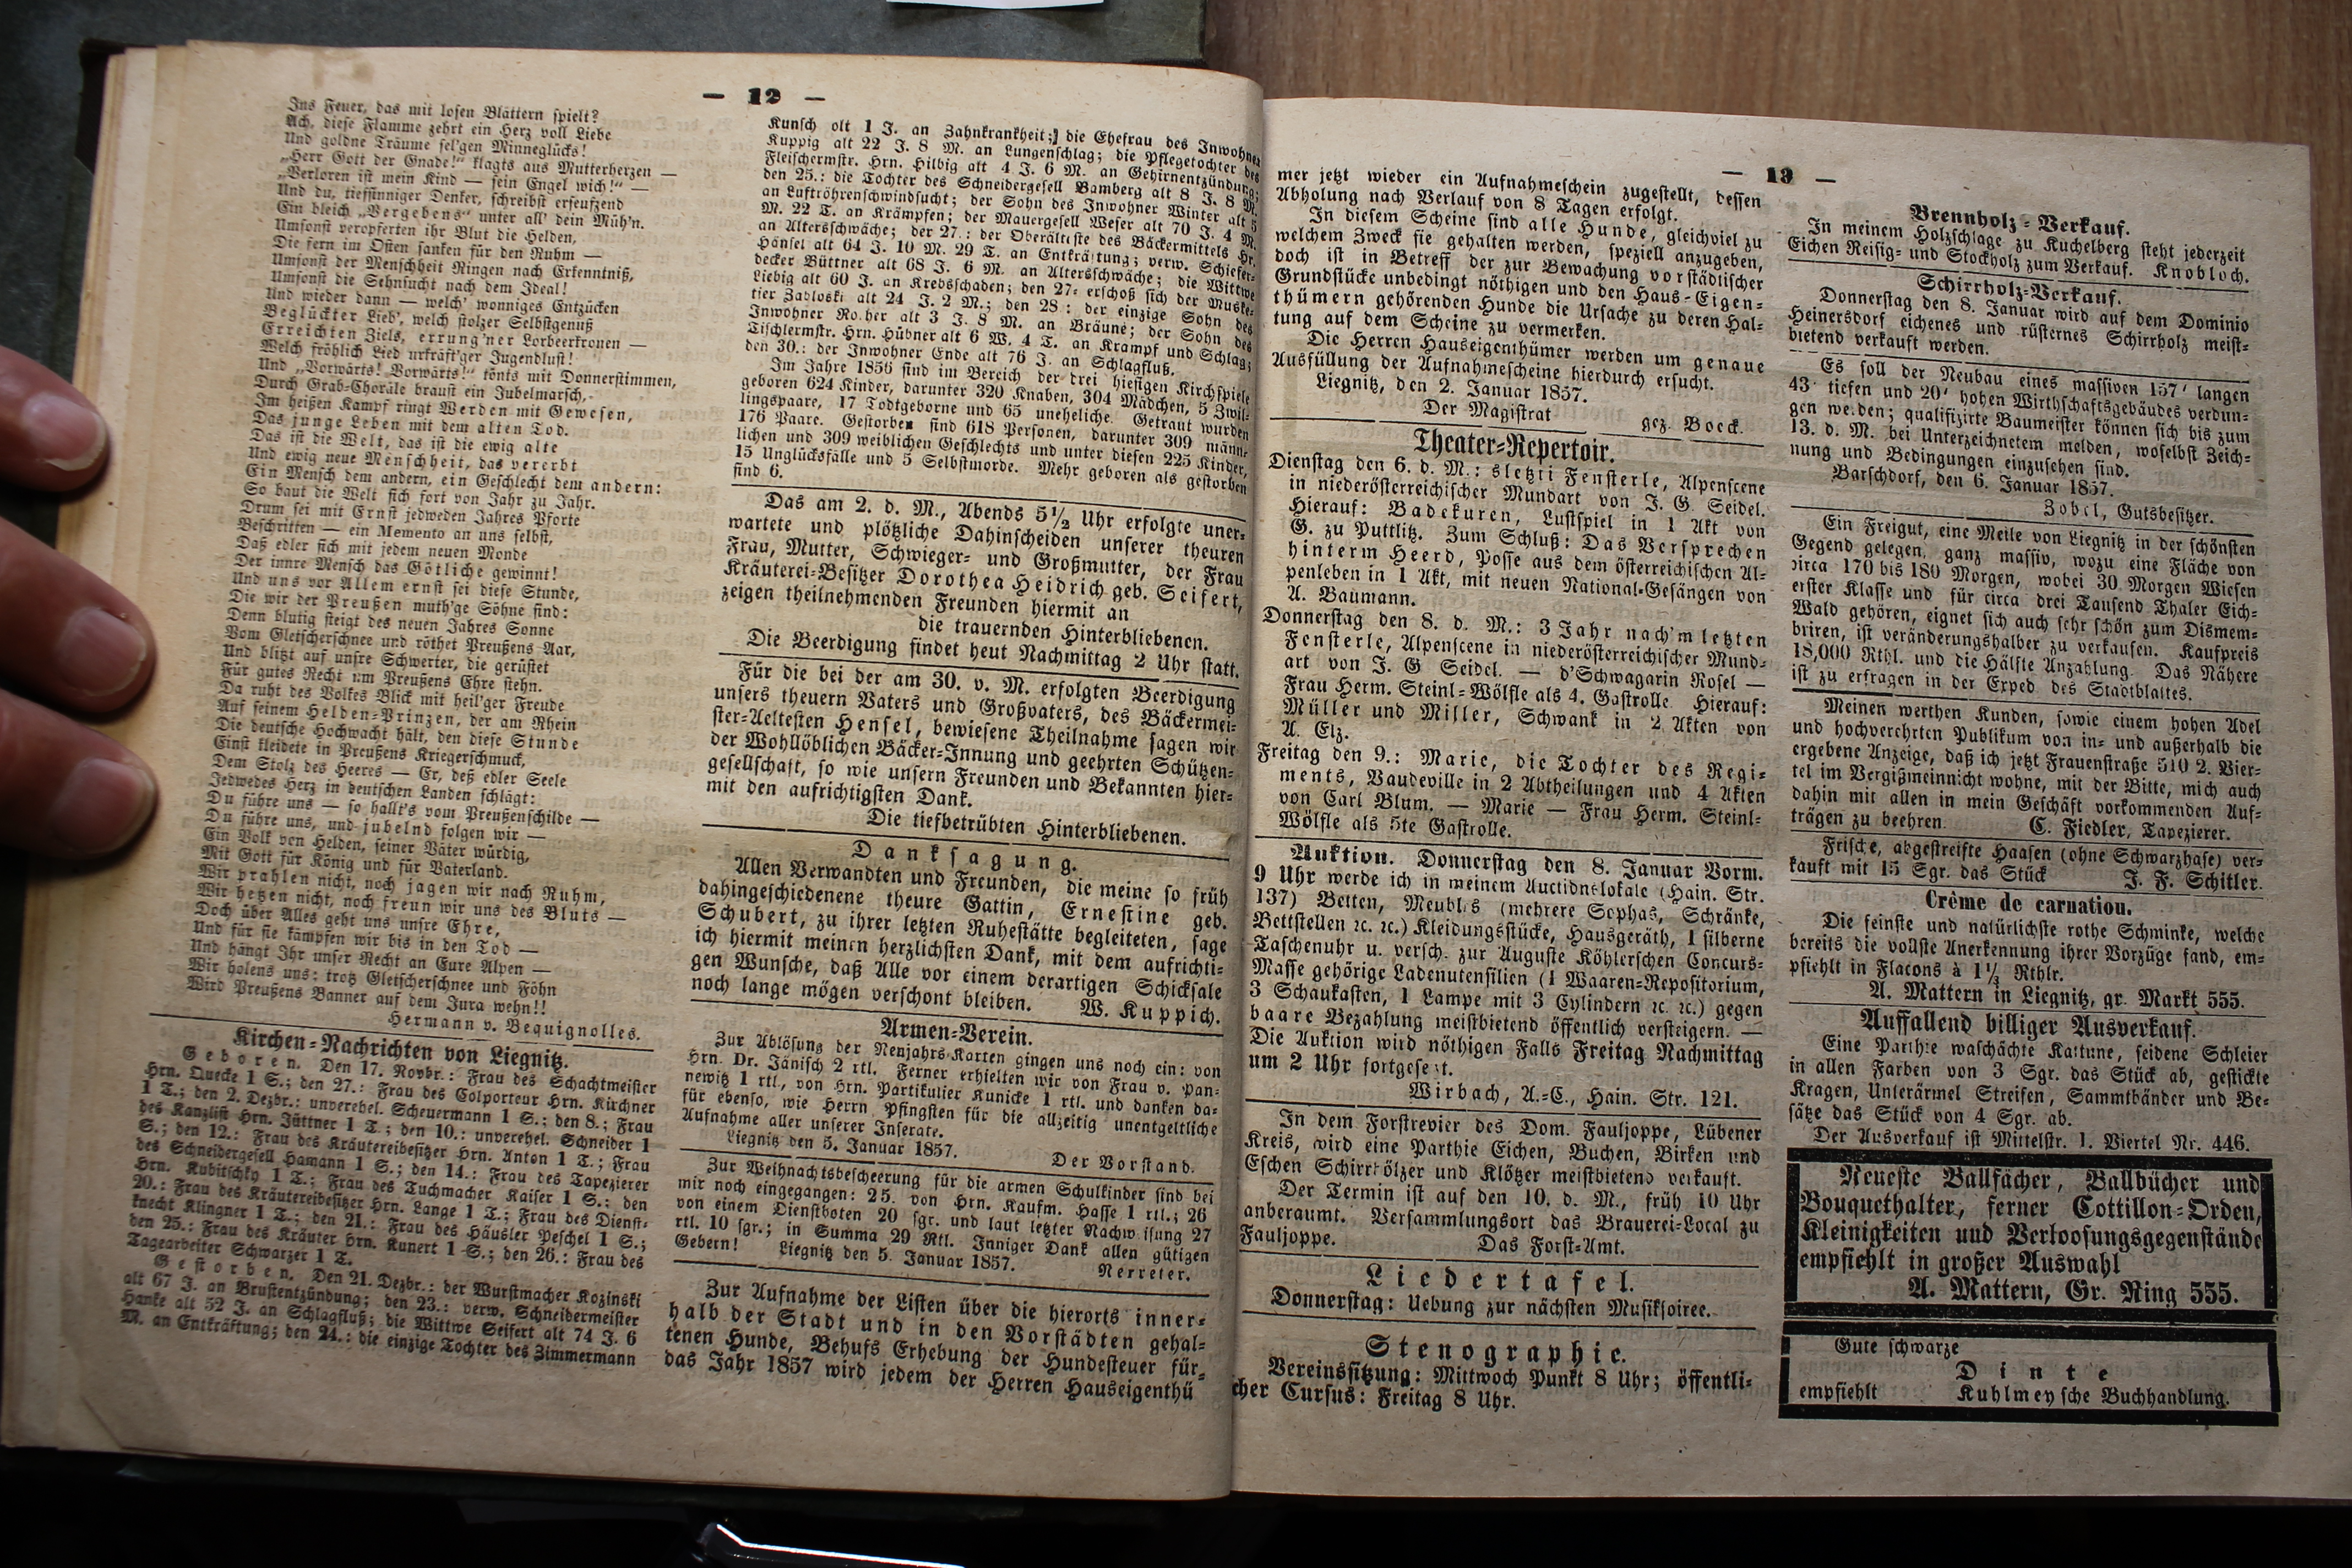 — 12 —
Ins Feuer, das mit losen Blättern spielt?
Ach, diese Flamme zehrt ein Herz voll Liebe
Und goldne Träume sel'gen Minneglücks!
„Herr Gott der Gnade!“ klagts aus Mutterherzen —
„Verloren ist mein Kind — sein Engel wich!“ —
Und du, tiefsinniger Denker, schreibst erseufzend
Ein bleich „Vergebens“ unter all' dein Müh'n.
Umsonst veropferten ihr Blut die Helden,
Die fern im Osten sanken für den Ruhm —
Umsonst der Menschheit Ringen nach Erkenntniß,
Umsonst die Sehnsucht nach dem Ideal!
Und wieder dann — welch' wonniges Entzücken
Beglückter Lieb', welch stolzer Selbstgenuß
Erreichten Ziels, errung'ner Lorbeerkronen —
Welch fröhlich Lied urkräft'ger Jugendlust!
Und „Vorwärts! Vorwärts!“ tönts mit Donnerstimmen,
Durch Grab-Choräle braust ein Jubelmarsch,
Im heißen Kampf ringt Werden mit Gewesen,
Das junge Leben mit dem alten Tod.
Das ist die Welt, das ist die ewig alte
Und ewig neue Menschheit, das vererbt
Ein Mensch dem andern, ein Geschlecht dem andern:
So baut die Welt sich fort von Jahr zu Jahr.
Drum sei mit Ernst jedweden Jahres Pforte
Beschritten — ein Memento an uns selbst,
Daß edler sich mit jedem neuen Monde
Der innre Mensch das Götliche gewinnt!
Und uns vor Allem ernst sei diese Stunde,
Die wir der Preußen muth'ge Söhne sind:
Denn blutig steigt des neuen Jahres Sonne
Vom Gletscherschnee und röthet Preußens Aar,
Und blitzt auf unsre Schwerter, die gerüstet
Für gutes Recht um Preußens Ehre stehn.
Da ruht des Volkes Blick mit heil'ger Freude
Auf seinem Helden-Prinzen, der am Rhein
Die deutsche Hochwacht hält, den diese Stunde
Einst kleidete in Preußens Kriegerschmuck,
Dem Stolz des Heeres — Er, deß edler Seele
Jedwedes Herz in deutschen Landen schlägt:
Du führe uns — so hallt's vom Preußenschilde —
Du führe uns, und jubelnd folgen wir —
Ein Volk von Helden, seiner Väter würdig,
Mit Gott für König und für Vaterland.
Wir prahlen nicht, noch jagen wir nach Ruhm,
Wir hetzen nicht, noch freun wir uns des Bluts —
Doch über Alles geht uns unsre Ehre,
Und für sie kämpfen wir bis in den Tod —
Und hängt Ihr unser Recht an Eure Alpen —
Wir holens uns: trotz Gletscherschnee und Föhn
Wird Preußens Banner auf dem Jura wehn!!
Hermann v. Bequignolles.
Kirchen-Nachrichten von Liegnitz.
Geboren. Den 17. Novbr.: Frau des Schachtmeister
Hrn. Quecke 1 S.; den 27.: Frau des Colporteur Hrn. Kirchner
1 T.; den 2. Dezbr.: unverehel. Scheuermann 1 S.; den 8.; Frau
des Kanzlist Hrn. Jüttner 1 T.; den 10.: unverehel. Schneider 1
S.; den 12.: Frau des Kräutereibesitzer Hrn. Anton 1 T.; Frau
des Schneidergesell Hamann 1 S.; den 14.: Frau des Tapezierer
Hrn. Kubitschky 1 T.; Frau des Tuchmacher Kaiser 1 S.; den
20.: Frau des Kräutereibesitzer Hrn. Lange 1 T.; Frau des Dienst-
knecht Klingner 1 T.; den 21.: Frau des Häusler Peschel 1 S.;
den 25.: Frau des Kräuter Hrn. Kunert 1 S.; den 26.: Frau des
Tagearbeiter Schwarzer 1 T.
Gestorben. Den 21. Dezbr.: der Wurstmacher Kozinski
alt 67 J. an Brustentzündung; den 23.: verw. Schneidermeister
Hanke alt 52 J. an Schlagfluß; die Wittwe Seifert alt 74 J. 6
M. an Entkräftung; den 24.: die einzige Tochter des Zimmermann
Kunsch olt 1 J. an Zahnkrankheit; die Ehefrau des Inwohner
Kuppig alt 22 J. 8 M. an Lungenschlag; die Pflegetochter des
Fleischermstr. Hrn. Hilbig alt 4 J. 6 M. an Gehirnentzündung;
den 25.: die Tochter des Schneidergesell Bamberg alt 8 J. 8 M.
an Luftröhrenschwindsucht; der Sohn des Inwohner Winter alt 5
M. 22 T. an Krämpfen; der Mauergesell Weser alt 70 J. 4 M.
an Altersschwäche; der 27.: der Oberälteste des Bäckermittels Hr.
Hänsel alt 64 J. 10 M. 29 T. an Entkräftung; verw. Schiefer-
decker Büttner alt 68 J. 6 M. an Altersschwäche; die Wittwe
Liebig alt 60 J. an Krebsschaden; den 27. erschoß sich der Muske-
tier Zabloski alt 24 J. 2 M.; den 28.: der einzige Sohn des
Inwohner Rother alt 3 J. 8 M. an Bräune; der Sohn des
Tischlermstr. Hrn. Hübner alt 6 W. 4 T. an Krampf und Schlag;
den 30.: der Inwohner Ende alt 76 J. an Schlagfluß.
Im Jahre 1856 sind im Bereich der drei hiesigen Kirchspiele
geboren 624 Kinder, darunter 320 Knaben, 304 Mädchen, 5 Zwil-
lingspaare, 17 Todtgeborne und 65 uneheliche. Getraut wurden
176 Paare. Gestorben sind 618 Personen, darunter 309 männ-
lichen und 309 weiblichen Geschlechts und unter diesen 225 Kinder,
15 Unglücksfälle und 5 Selbstmorde. Mehr geboren als gestorben
sind 6.
Das am 2. d. M., Abends 5½ Uhr erfolgte uner-
wartete und plötzliche Dahinscheiden unserer theuren
Frau, Mutter, Schwieger- und Großmutter, der Frau
Kräuterei-Besitzer Dorothea Heidrich geb. Seifert,
zeigen theilnehmenden Freunden hiermit an
die trauernden Hinterbliebenen.
Die Beerdigung findet heut Nachmittag 2 Uhr statt.
Für die bei der am 30. v. M. erfolgten Beerdigung
unsers theuern Vaters und Großvaters, des Bäckermei-
ster-Aeltesten Hensel, bewiesene Theilnahme sagen wir
der Wohllöblichen Bäcker-Innung und geehrten Schützen-
gesellschaft, so wie unsern Freunden und Bekannten hier-
mit den aufrichtigsten Dank.
Die tiefbetrübten Hinterbliebenen.
Danksagung.
Allen Verwandten und Freunden, die meine so früh
dahingeschiedenene theure Gattin, Ernestine geb.
Schubert, zu ihrer letzten Ruhestätte begleiteten, sage
ich hiermit meinen herzlichsten Dank, mit dem aufrichti-
gen Wunsche, daß Alle vor einem derartigen Schicksale
noch lange mögen verschont bleiben. W. Kuppich.
Armen-Verein.
Zur Ablösung der Neujahrs-Karten gingen uns noch ein: von
Hrn. Dr. Jänisch 2 rtl. Ferner erhielten wir von Frau v. Pan-
newitz 1 rtl., von Hrn. Partikulier Kunicke 1 rtl. und danken da-
für ebenso, wie Herrn Pfingsten für die allzeitig unentgeltliche
Aufnahme aller unserer Inserate.
Liegnitz den 5. Januar 1857. Der Vorstand.
Zur Weihnachtsbescheerung für die armen Schulkinder sind bei
mir noch eingegangen: 25. von Hrn. Kaufm. Hasse 1 rtl.; 26
von einem Dienstboten 20 sgr. und laut letzter Nachweisung 27
rtl. 10 sgr.; in Summa 29 Rtl. Inniger Dank allen gütigen
Gebern! Liegnitz den 5. Januar 1857. Nerreter.
Zur Aufnahme der Listen über die hierorts inner-
halb der Stadt und in den Vorstädten gehal-
tenen Hunde, Behufs Erhebung der Hundesteuer für
das Jahr 1857 wird jedem der Herren Hauseigenthü
— 13 —
mer jetzt wieder ein Aufnahmeschein zugestellt, dessen
Abholung nach Verlauf von 8 Tagen erfolgt.
In diesem Scheine sind alle Hunde, gleichviel zu
welchem Zweck sie gehalten werden, speziell anzugeben,
doch ist in Betreff der zur Bewachung vorstädtischer
Grundstücke unbedingt nöthigen und den Haus-Eigen-
thümern gehörenden Hunde die Ursache zu deren Hal-
tung auf dem Scheine zu vermerken.
Die Herren Hauseigenthümer werden um genaue
Ausfüllung der Aufnahmescheine hierdurch ersucht.
Liegnitz, den 2. Januar 1857.
Der Magistrat gez. Boeck.
Theater-Repertoir.
Dienstag den 6. d. M.: sletzti Fensterle, Alpenscene
in niederösterreichischer Mundart von J. G. Seidel.
Hierauf: Badekuren, Lustspiel in 1 Akt von
G. zu Puttlitz. Zum Schluß: Das Versprechen
hinterm Heerd, Posse aus dem österreichischen Al-
penleben in 1 Akt, mit neuen National-Gesängen von
A. Baumann.
Donnerstag den 8. d. M.: 3 Jahr nach'm letzten
Fensterle, Alpenscene in niederösterreichischer Mund-
art von J. G Seidel. — d'Schwagarin Rosel —
Frau Herm. Steinl-Wölfle als 4. Gastrolle. Hierauf:
Müller und Miller, Schwank in 2 Akten von
A. Elz.
Freitag den 9.: Marie, die Tochter des Regi-
ments, Vaudeville in 2 Abtheilungen und 4 Akten
von Carl Blum. — Marie — Frau Herm. Steinl-
Wölfle als 5te Gastrolle.
Auktion. Donnerstag den 8. Januar Vorm.
9 Uhr werde ich in meinem Auctionslokale (Hain. Str.
137) Betten, Meubles (mehrere Sophas, Schränke,
Bettstellen ꝛc. ꝛc.) Kleidungsstücke, Hausgeräth, 1 silberne
Taschenuhr u. versch. zur Auguste Köhlerschen Concurs-
Masse gehörige Ladenutensilien (1 Waaren-Repositorium,
3 Schaukasten, 1 Lampe mit 3 Cylindern ꝛc. ꝛc.) gegen
baare Bezahlung meistbietend öffentlich versteigern. —
Die Auktion wird nöthigen Falls Freitag Nachmittag
um 2 Uhr fortgesetzt.
Wirbach, A.-C., Hain. Str. 121.
In dem Forstrevier des Dom. Fauljoppe, Lübener
Kreis, wird eine Parthie Eichen, Buchen, Birken und
Eschen Schirrhölzer und Klötzer meistbietend verkauft.
Der Termin ist auf den 10. d. M., früh 10 Uhr
anberaumt. Versammlungsort das Brauerei-Local zu
Fauljoppe. Das Forst-Amt.
Liedertafel.
Donnerstag: Uebung zur nächsten Musiksoiree.
Stenographie.
Vereinssitzung: Mittwoch Punkt 8 Uhr; öffentli-
cher Cursus: Freitag 8 Uhr.
Brennholz-Verkauf.
In meinem Holzschlage zu Kuchelberg steht jederzeit
Eichen Reisig- und Stockholz zum Verkauf. Knobloch.
Schirrholz-Verkauf.
Donnerstag den 8. Januar wird auf dem Dominio
Heinersdorf eichenes und rüsternes Schirrholz meist-
bietend verkauft werden.
Es soll der Neubau eines massiven 157' langen
43' tiefen und 20' hohen Wirthschaftsgebäudes verdun-
gen werden; qualifizirte Baumeister können sich bis zum
13. d. M. bei Unterzeichnetem melden, woselbst Zeich-
nung und Bedingungen einzusehen sind.
Barschdorf, den 6. Januar 1857.
Zobel, Gutsbesitzer.
Ein Freigut, eine Meile von Liegnitz in der schönsten
Gegend gelegen, ganz massiv, wozu eine Fläche von
circa 170 bis 180 Morgen, wobei 30 Morgen Wiesen
erster Klasse und für circa drei Tausend Thaler Eich-
Wald gehören, eignet sich auch sehr schön zum Dismem-
briren, ist veränderungshalber zu verkaufen. Kaufpreis
18,000 Rthl. und die Hälfte Anzahlung. Das Nähere
ist zu erfragen in der Exped des Stadtblattes.
Meinen werthen Kunden, sowie einem hohen Adel
und hochverehrten Publikum von in- und außerhalb die
ergebene Anzeige, daß ich jetzt Frauenstraße 510 2. Vier-
tel im Vergißmeinnicht wohne, mit der Bitte, mich auch
dahin mit allen in mein Geschäft vorkommenden Auf-
trägen zu beehren. C. Fiedler, Tapezierer.
Frische, abgestreifte Haasen (ohne Schwarzhase) ver-
kauft mit 15 Sgr. das Stück J. F. Schitler.
Crême de carnation.
Die feinste und natürlichste rothe Schminke, welche
bereits die vollste Anerkennung ihrer Vorzüge fand, em-
pfiehlt in Flacons à 1⅓ Rthlr.
A. Mattern in Liegnitz, gr. Markt 555.
Auffallend billiger Ausverkauf.
Eine Parthie waschächte Kattune, seidene Schleier
in allen Farben von 3 Sgr. das Stück ab, gestickte
Kragen, Unterärmel Streifen, Sammtbänder und Be-
sätze das Stück von 4 Sgr. ab.
Der Ausverkauf ist Mittelstr. 1. Viertel Nr. 446.
Neueste Ballfächer, Ballbücher und
Bouquethalter, ferner Cottillon-Orden,
Kleinigkeiten und Verloosungsgegenstände
empfiehlt in großer Auswahl
A. Mattern, Gr. Ring 555.
Gute schwarze
Dinte
empfiehlt Kuhlmeysche Buchhandlung.